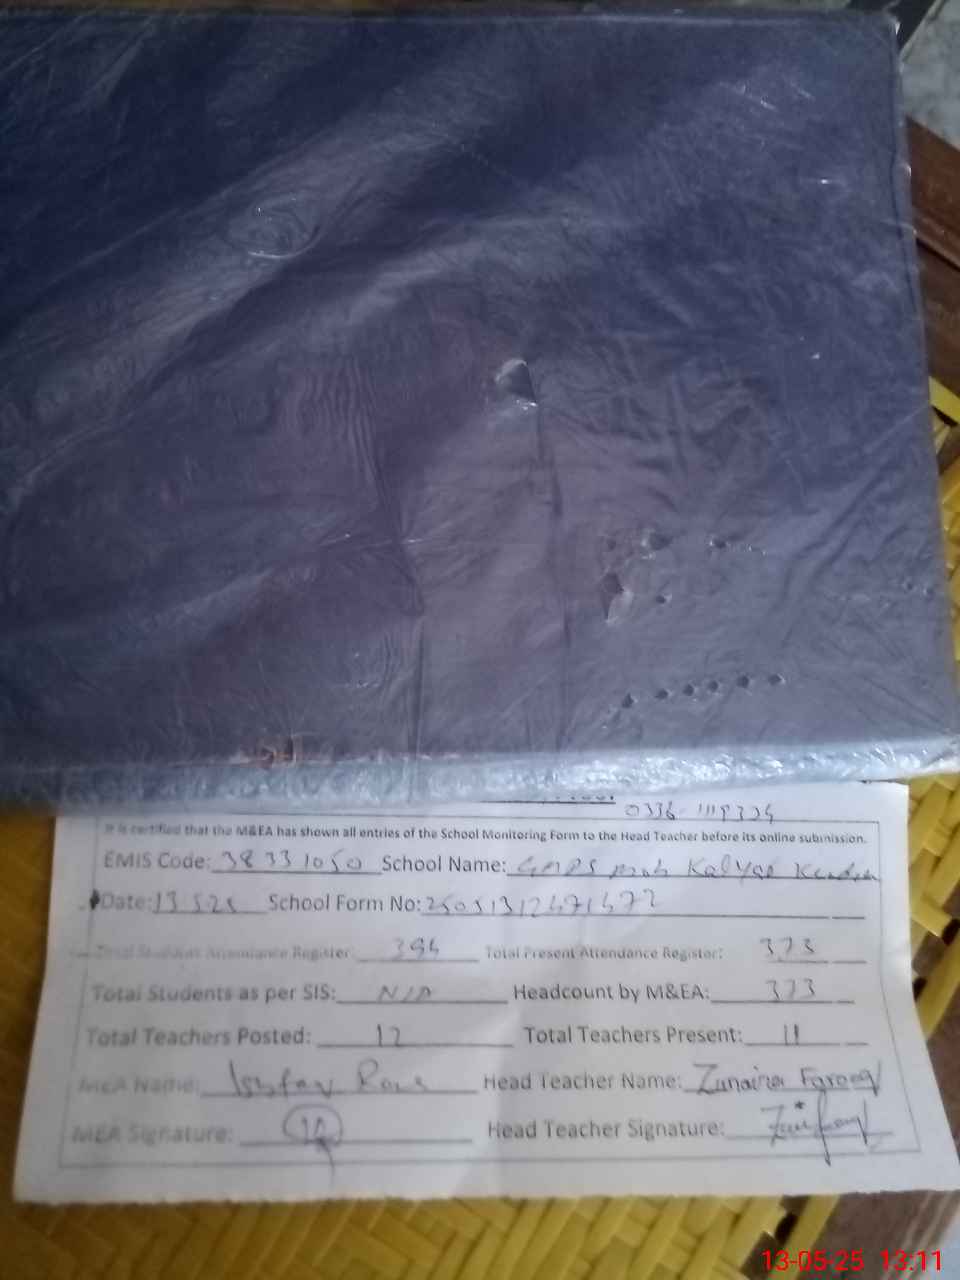 0336-1119324
It is certified that the M&EA has shown all entries of the School Monitoring Form to the Head Teacher before its online submission.
EMIS Code: 38331050 School Name: Kalyar
Date: 13 5 25 School Form No: 
Total Student Attendance Register: 394 Total Present Attendance Register: 373
Total Students as per SIS: N/A Headcount by M&EA: 373
Total Teachers Posted: 12 Total Teachers Present: 11
MEA Name: Head Teacher Name: Zunaira Farooq
MEA Signature: Head Teacher Signature:
13-05-25 13:11